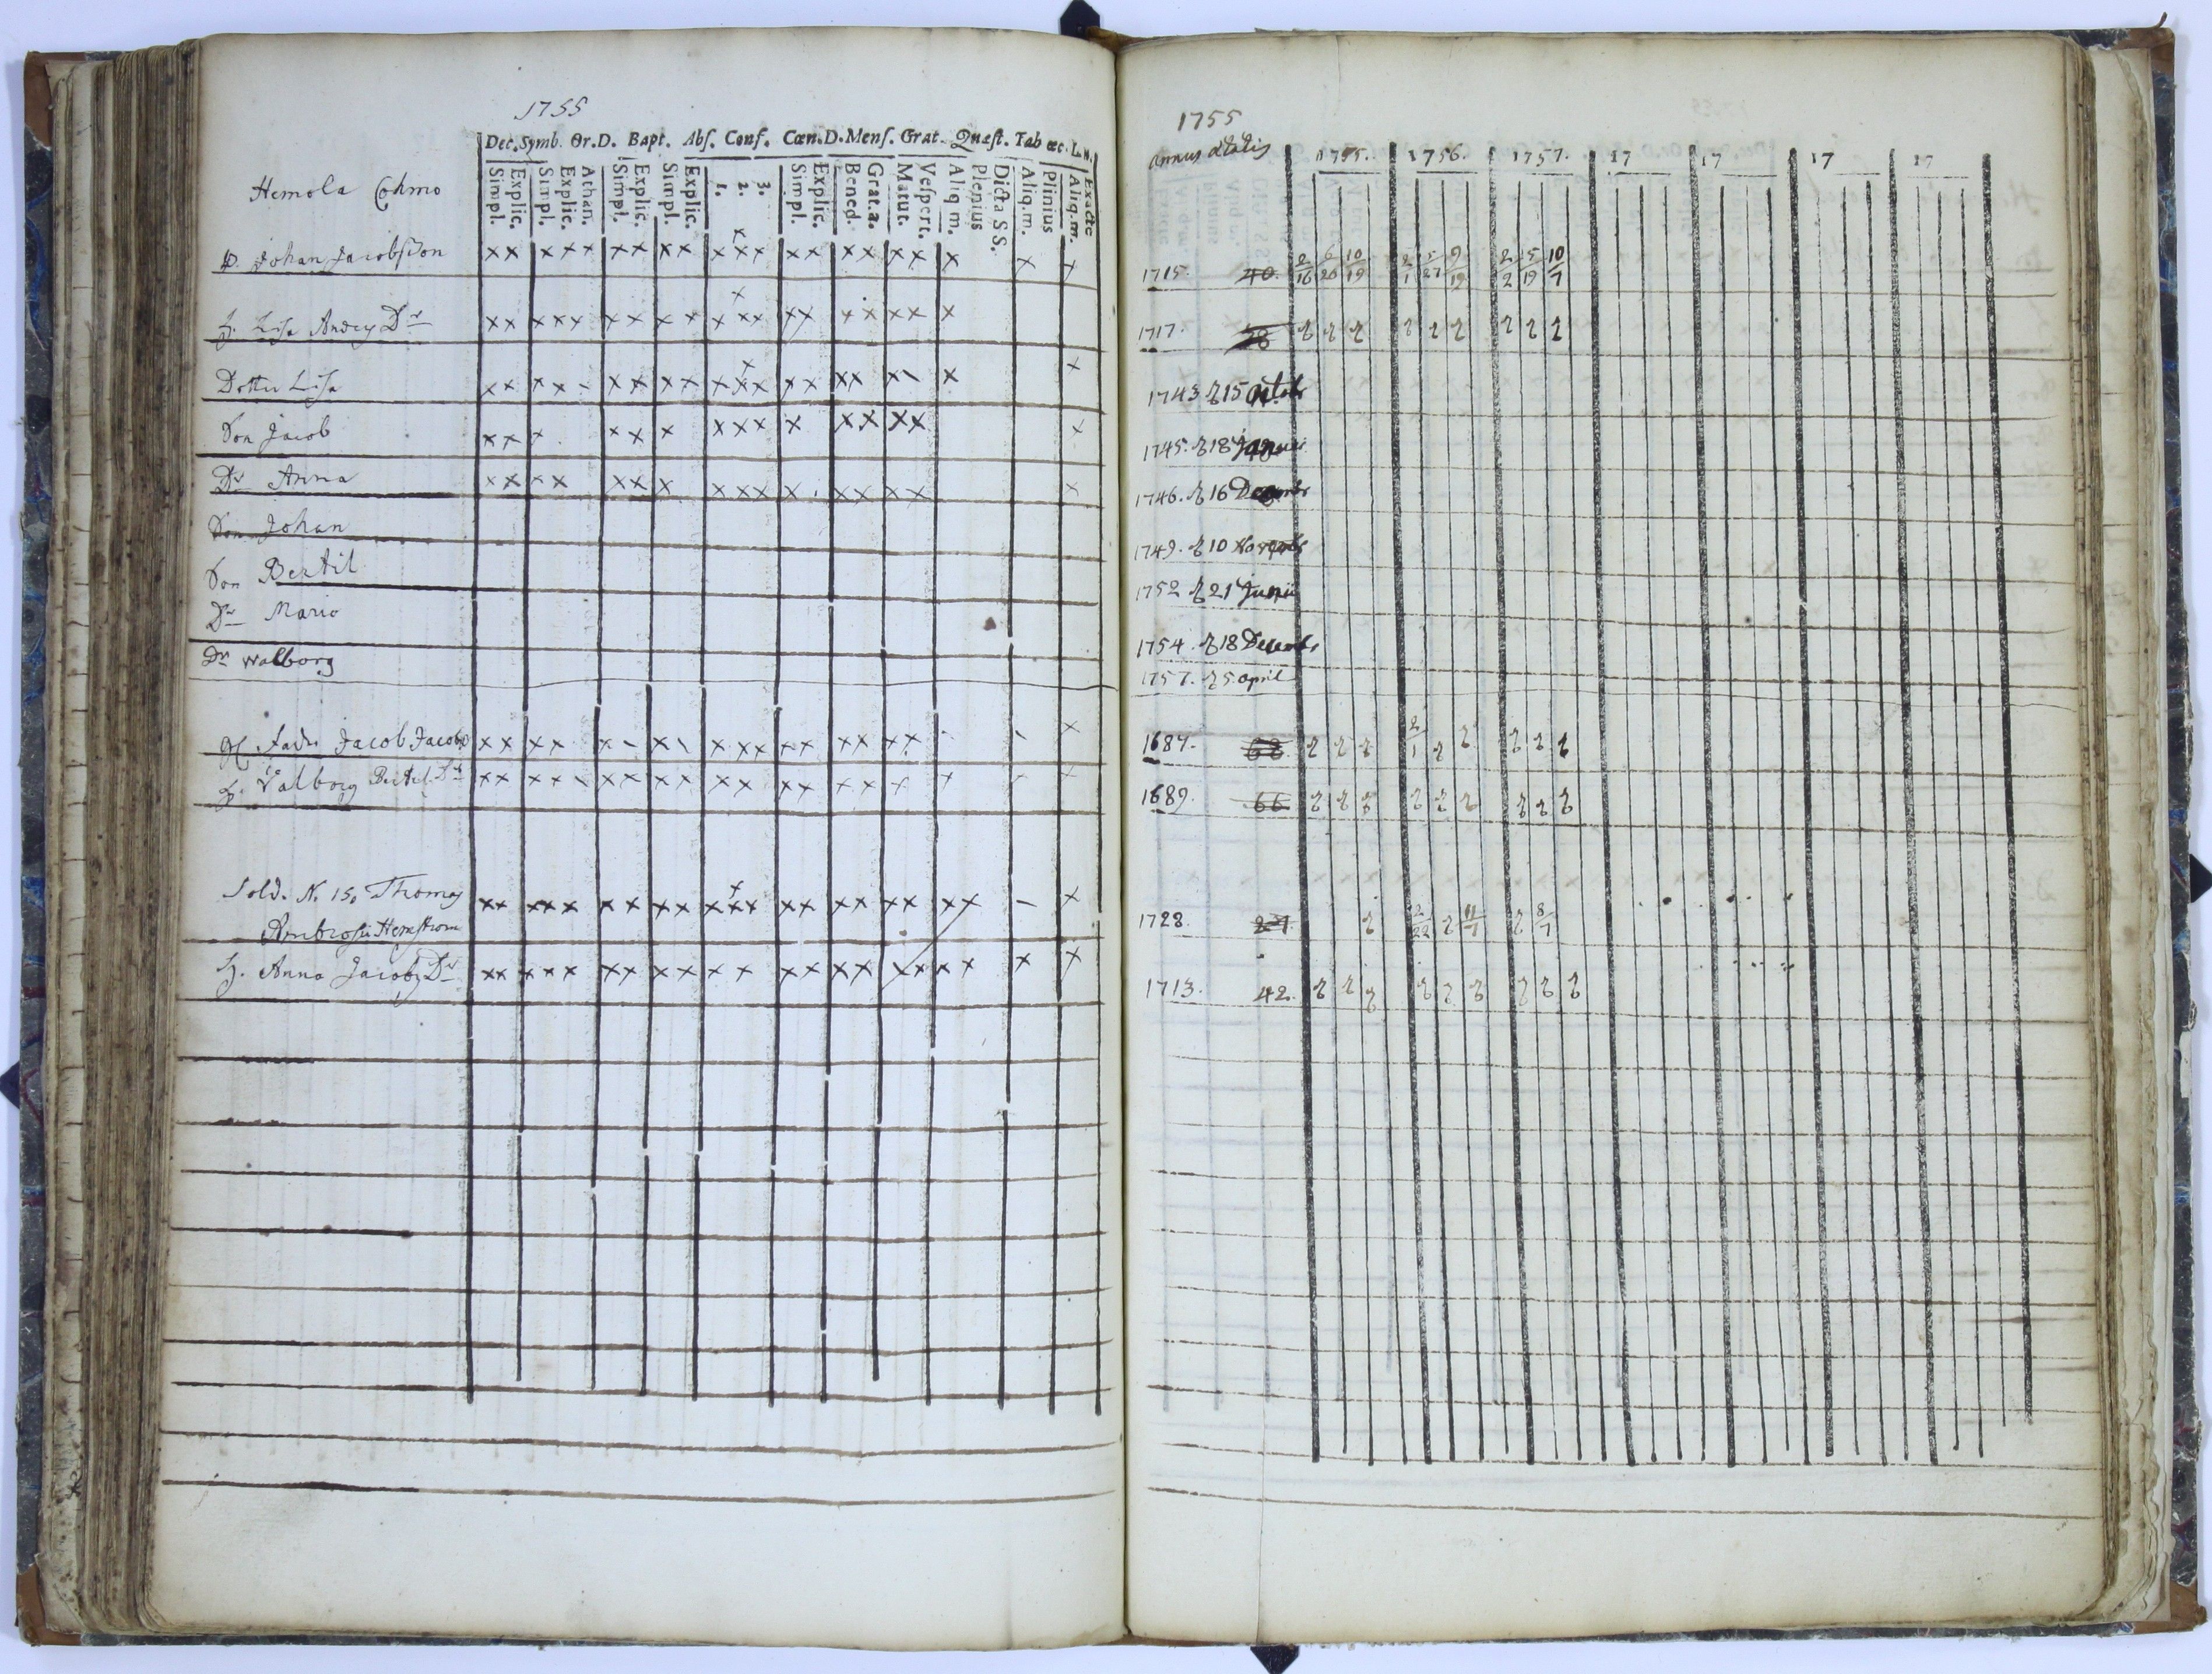 1755
Dec. Symb. Or. D. Bapt. Abſ. Conf. Cœn. D. Menſ. Grat. Quæſt. Tab œc. L. N.
Simpl. Explic. Simpl. Explic. Athan. Simpl. Explic. Simpl. Explic. 1. 2. 3. Simpl. Explic. Bened. Grat. a. Matut. Veſpert. Aliq. m. Plenius Dicta SS. Aliq. m. Plinius Aliq. m. Exacte
Hemola
Johan Jacobsson
H. Lisa Dr
Dotter Lisa
Son Jacob
Dr Anna
Son Johan
Son Bertil
Dr Maria
Dr Walborg
Fadr Jacob
H. Valborg Bertel Dr
Sold. N. 15. Thomas
Hemstrom
H. Anna Jacobs Dr
1755
annus ætatis 1755. 1756. 1757. 17 17 17 17
1715. 40. 2/16 6/26 10/19 2/1 5/27 9/19 2/2 5/19 10/7
1717. 38
1743 15 Octob
1745. 18 Januari
1746. 16 Decembr
1749. 10 Novembr
1752 21 Junii
1754. 18 Decembr
1757. 5. april
1687. 68 2/1
1689. 66
1728. 27 2/22 11/1 8/7
1713. 42.